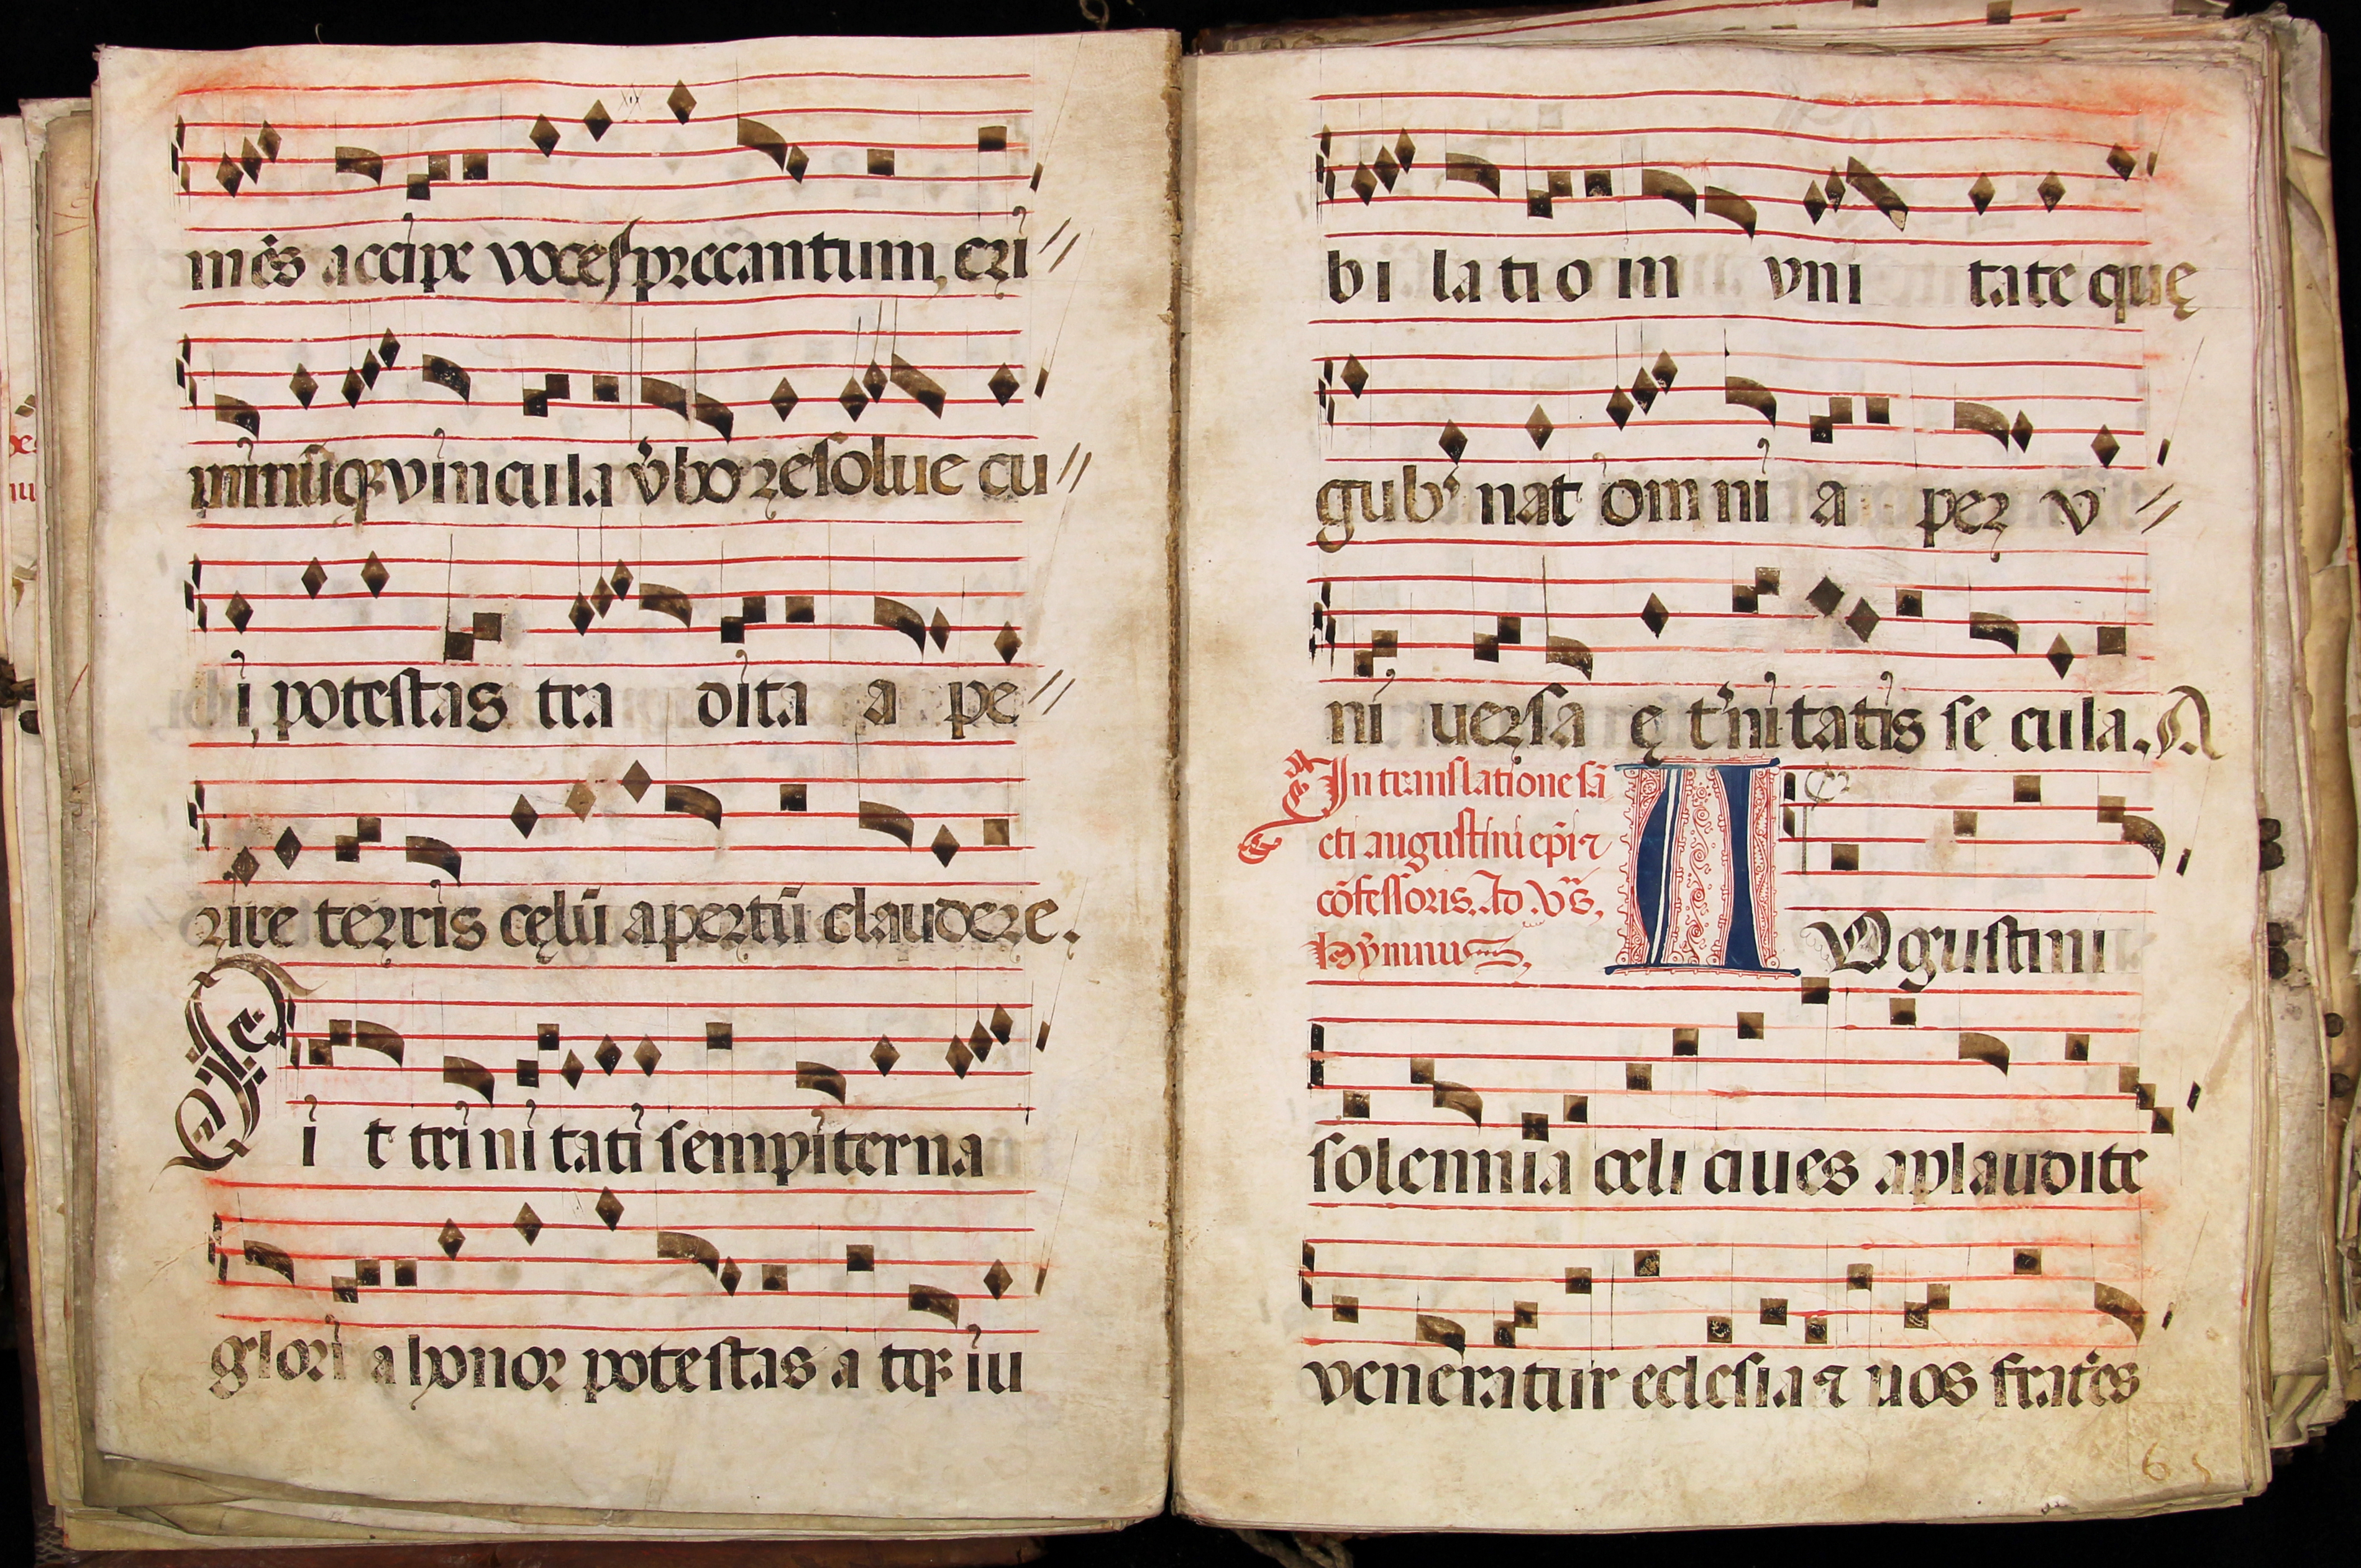 mēs accipe voces precantum, cri//
minūqꝫ vincula v̄bo resolue cu//
i, potestas tra dita a pe//
rire terris cęlū apertū claudere.
Sit trinitati sempiterna
glori a honor potestas a tqꝫ iu
bi latio in vni tate quę
gub̄nat omni a per v//
ni uersa ę t̄nitatis se cula. A
In translatione sā
cti augustini ep̄i ⁊
cōfessoris. Ad .Vs̄.
hymnus.
AVgustini
solennia celi ciues aplaudite
veneratur eclesia ⁊ uos frat̄es
65